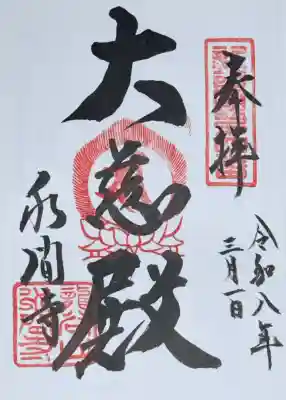 奉拝
令和八年
三月一日
大慈殿
永閒寺